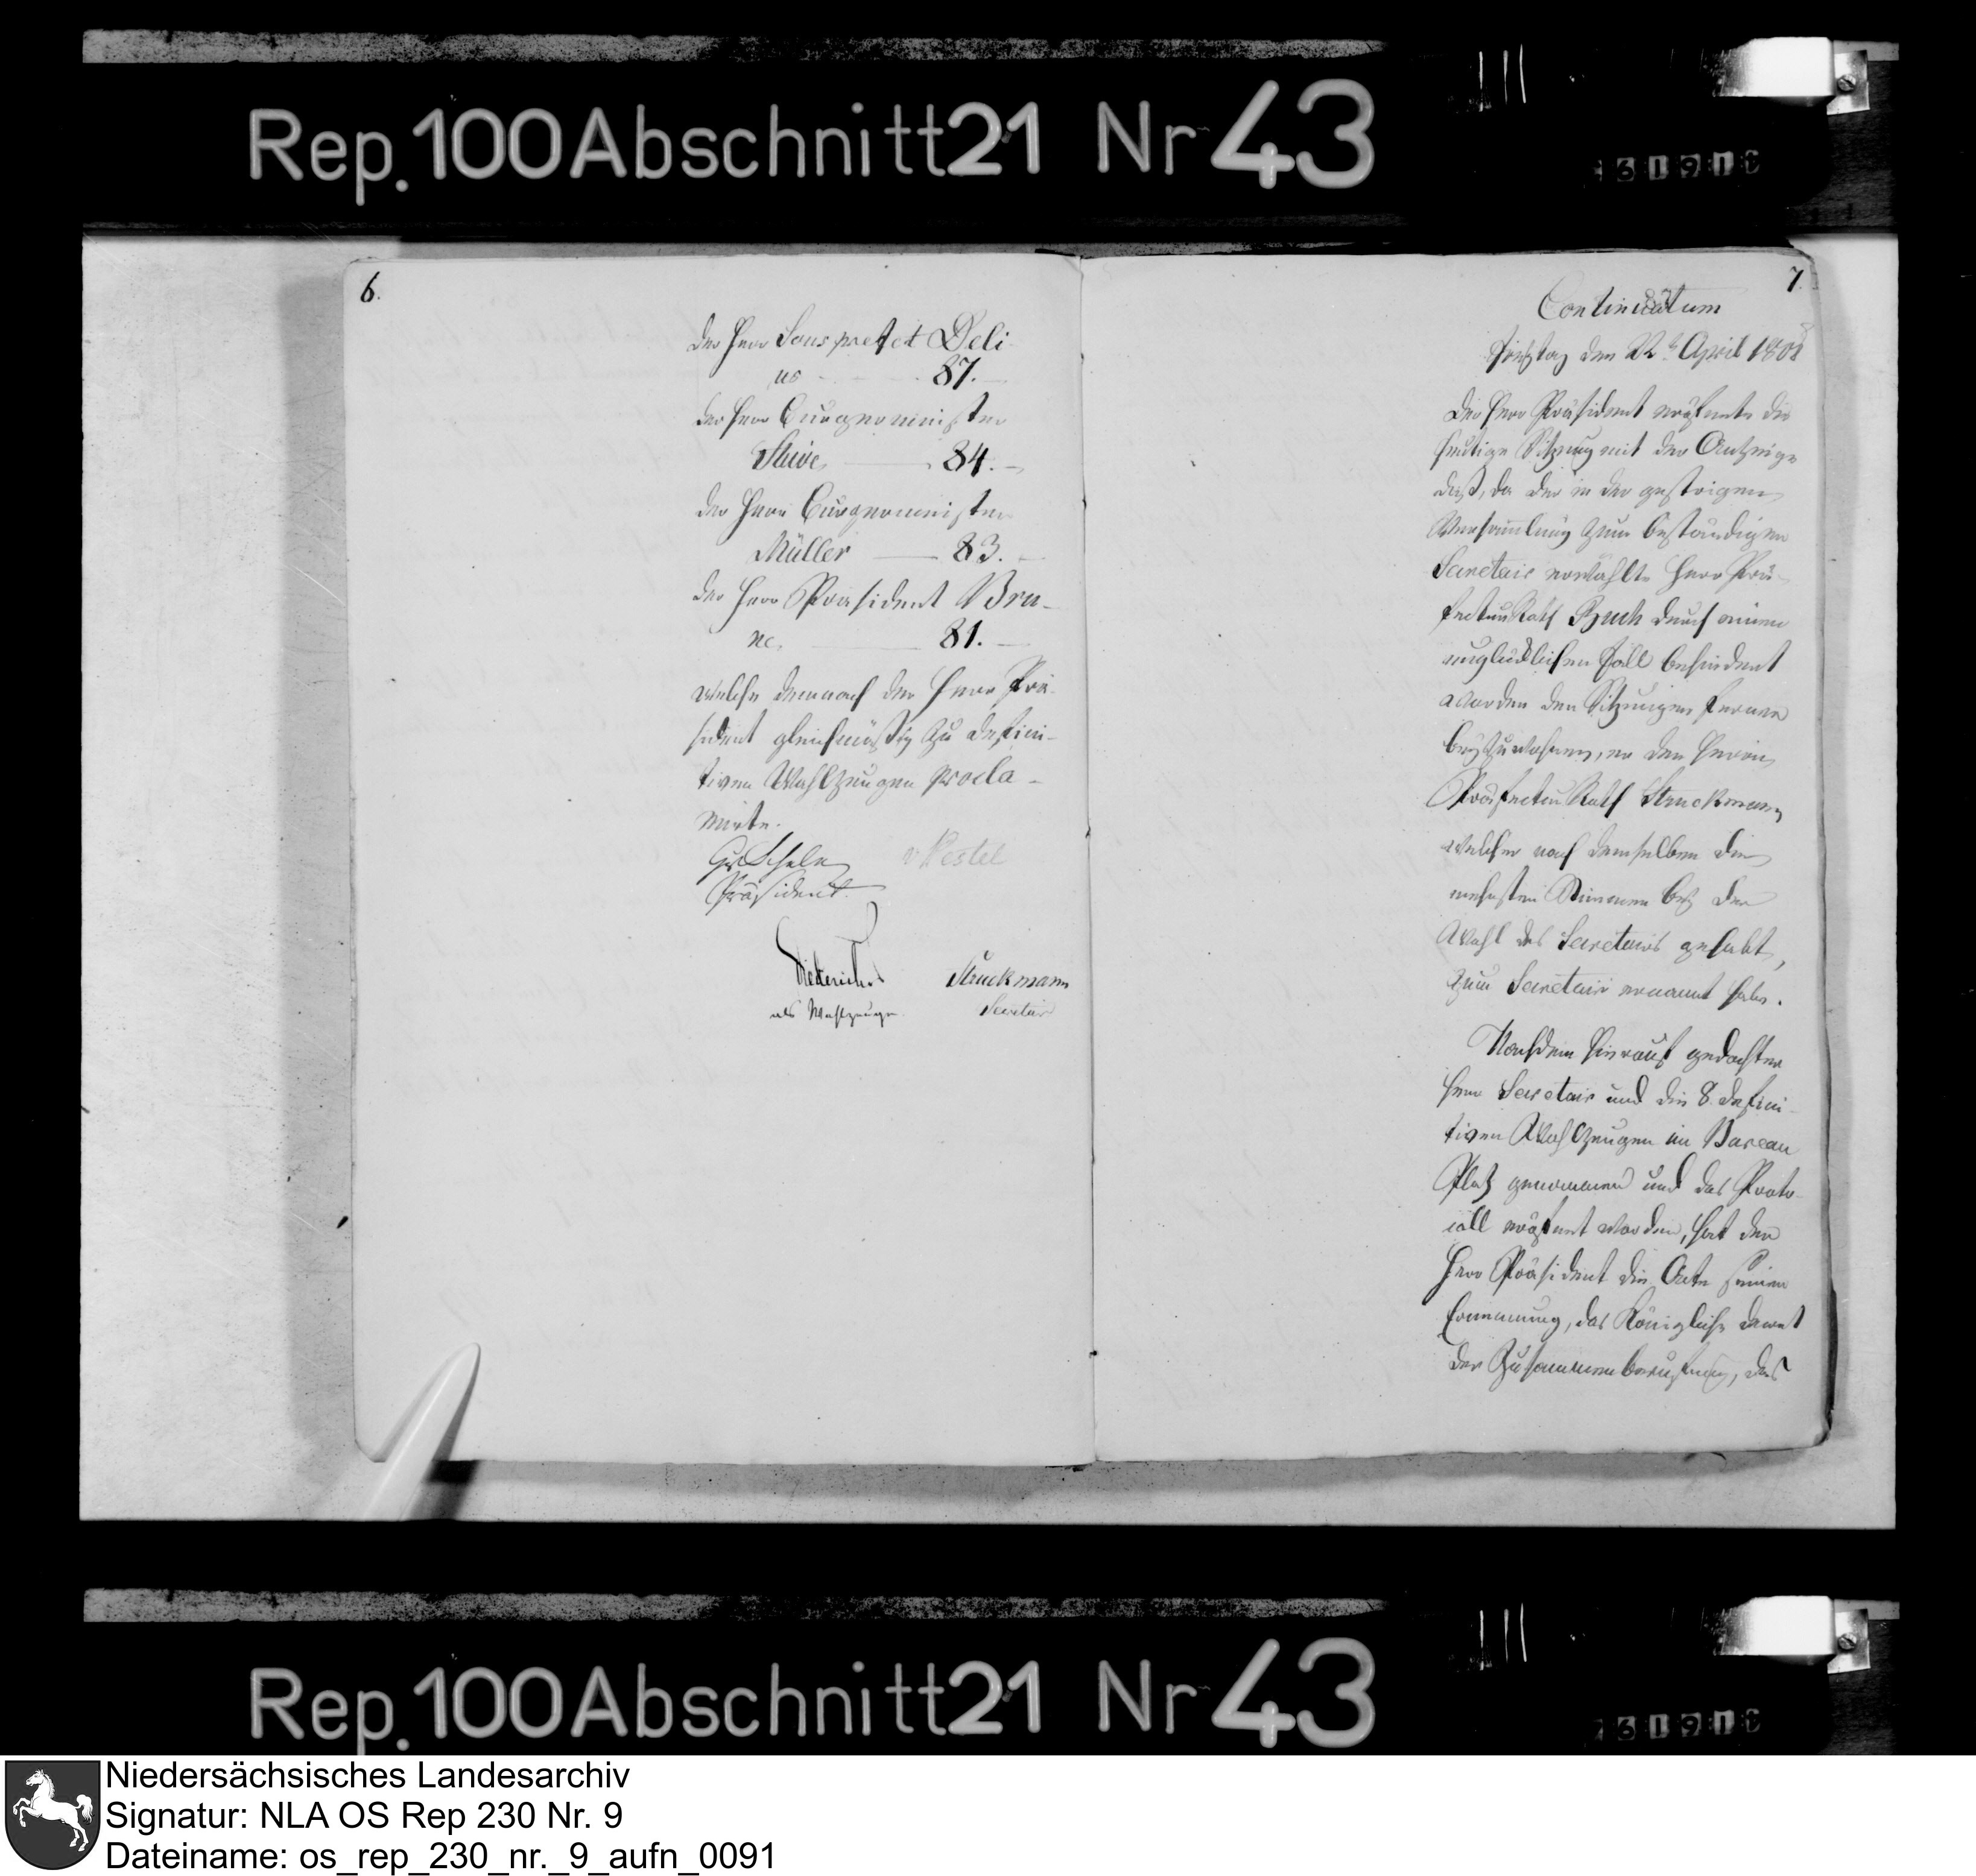 Rep. 100 Abschnitt 21 Nr 43
6191
6.
der Herr Sousprefect Deli-
us - - - 87. -
der Herr Burgermeister
Stüve, - 84. -
der Herr Burgermeister
Müller - 83. -
der Herr Präsident Bru-
ne, - 81. -
welche demnach der Herr Prä-
sident gleichmäßig zu defini-
tiven Wahlzeugen procla-
mirte.
Gr Schele v Pestel
Präsident.
Diederichs Struckmann
als Wahlzeuge Secretair
7.
Continuatum
Freytag den 22t April 1808
Der Herr Präsident eröfnete die
heutige Sitzung mit der Anzeige
daß, da der in der gestrigen
Versammlung zum beständigen
Secretair erwählte Herr Prä-
fecturRath Buch durch einen
unglücklichen Fall behindert
worden den Sitzungen ferner
beyzuwohnen, er den Herrn
PräfecturRath Struckmann,
welcher nach demselben die
mehrsten Stimmen bey der
Wahl des Secretairs gehabt,
zum Secretair ernannt habe.
Nachdem hierauf gedachter
Herr Secretair und die 8. defini-
tiven Wahlzeugen im Bureau
Platz genommen und das Proto-
coll eröfnet worden, hat der
Herr Präsident die Acte seiner
Ernennung, das Königliche Decret
der Zusammenberufung, das
Rep. 100 Abschnitt 21 Nr 43
6191
Niedersächsisches Landesarchiv
Signatur: NLA OS Rep 230 Nr. 9
Dateiname: os_rep_230_nr._9_aufn_0091